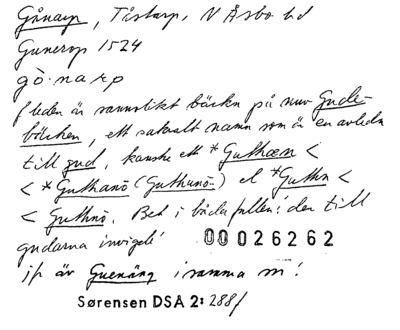 Gånarp, Tåstarp, N Åsbo hd
Gunerop 1524
gò·narp
f leden är sannolikt bäckn på nuv Gude-
bäcken, ett sakralt namn som är en avledn
till gud, kanske ett *Guthæn <
< *Guthanō (Guthunō-) el *Guthn <
< Guthnō. Bet i båda fallen: den till
gudarna invigde
00026262
jfr är Guenäng i samma sn!
Sørensen DSA 2: 288f